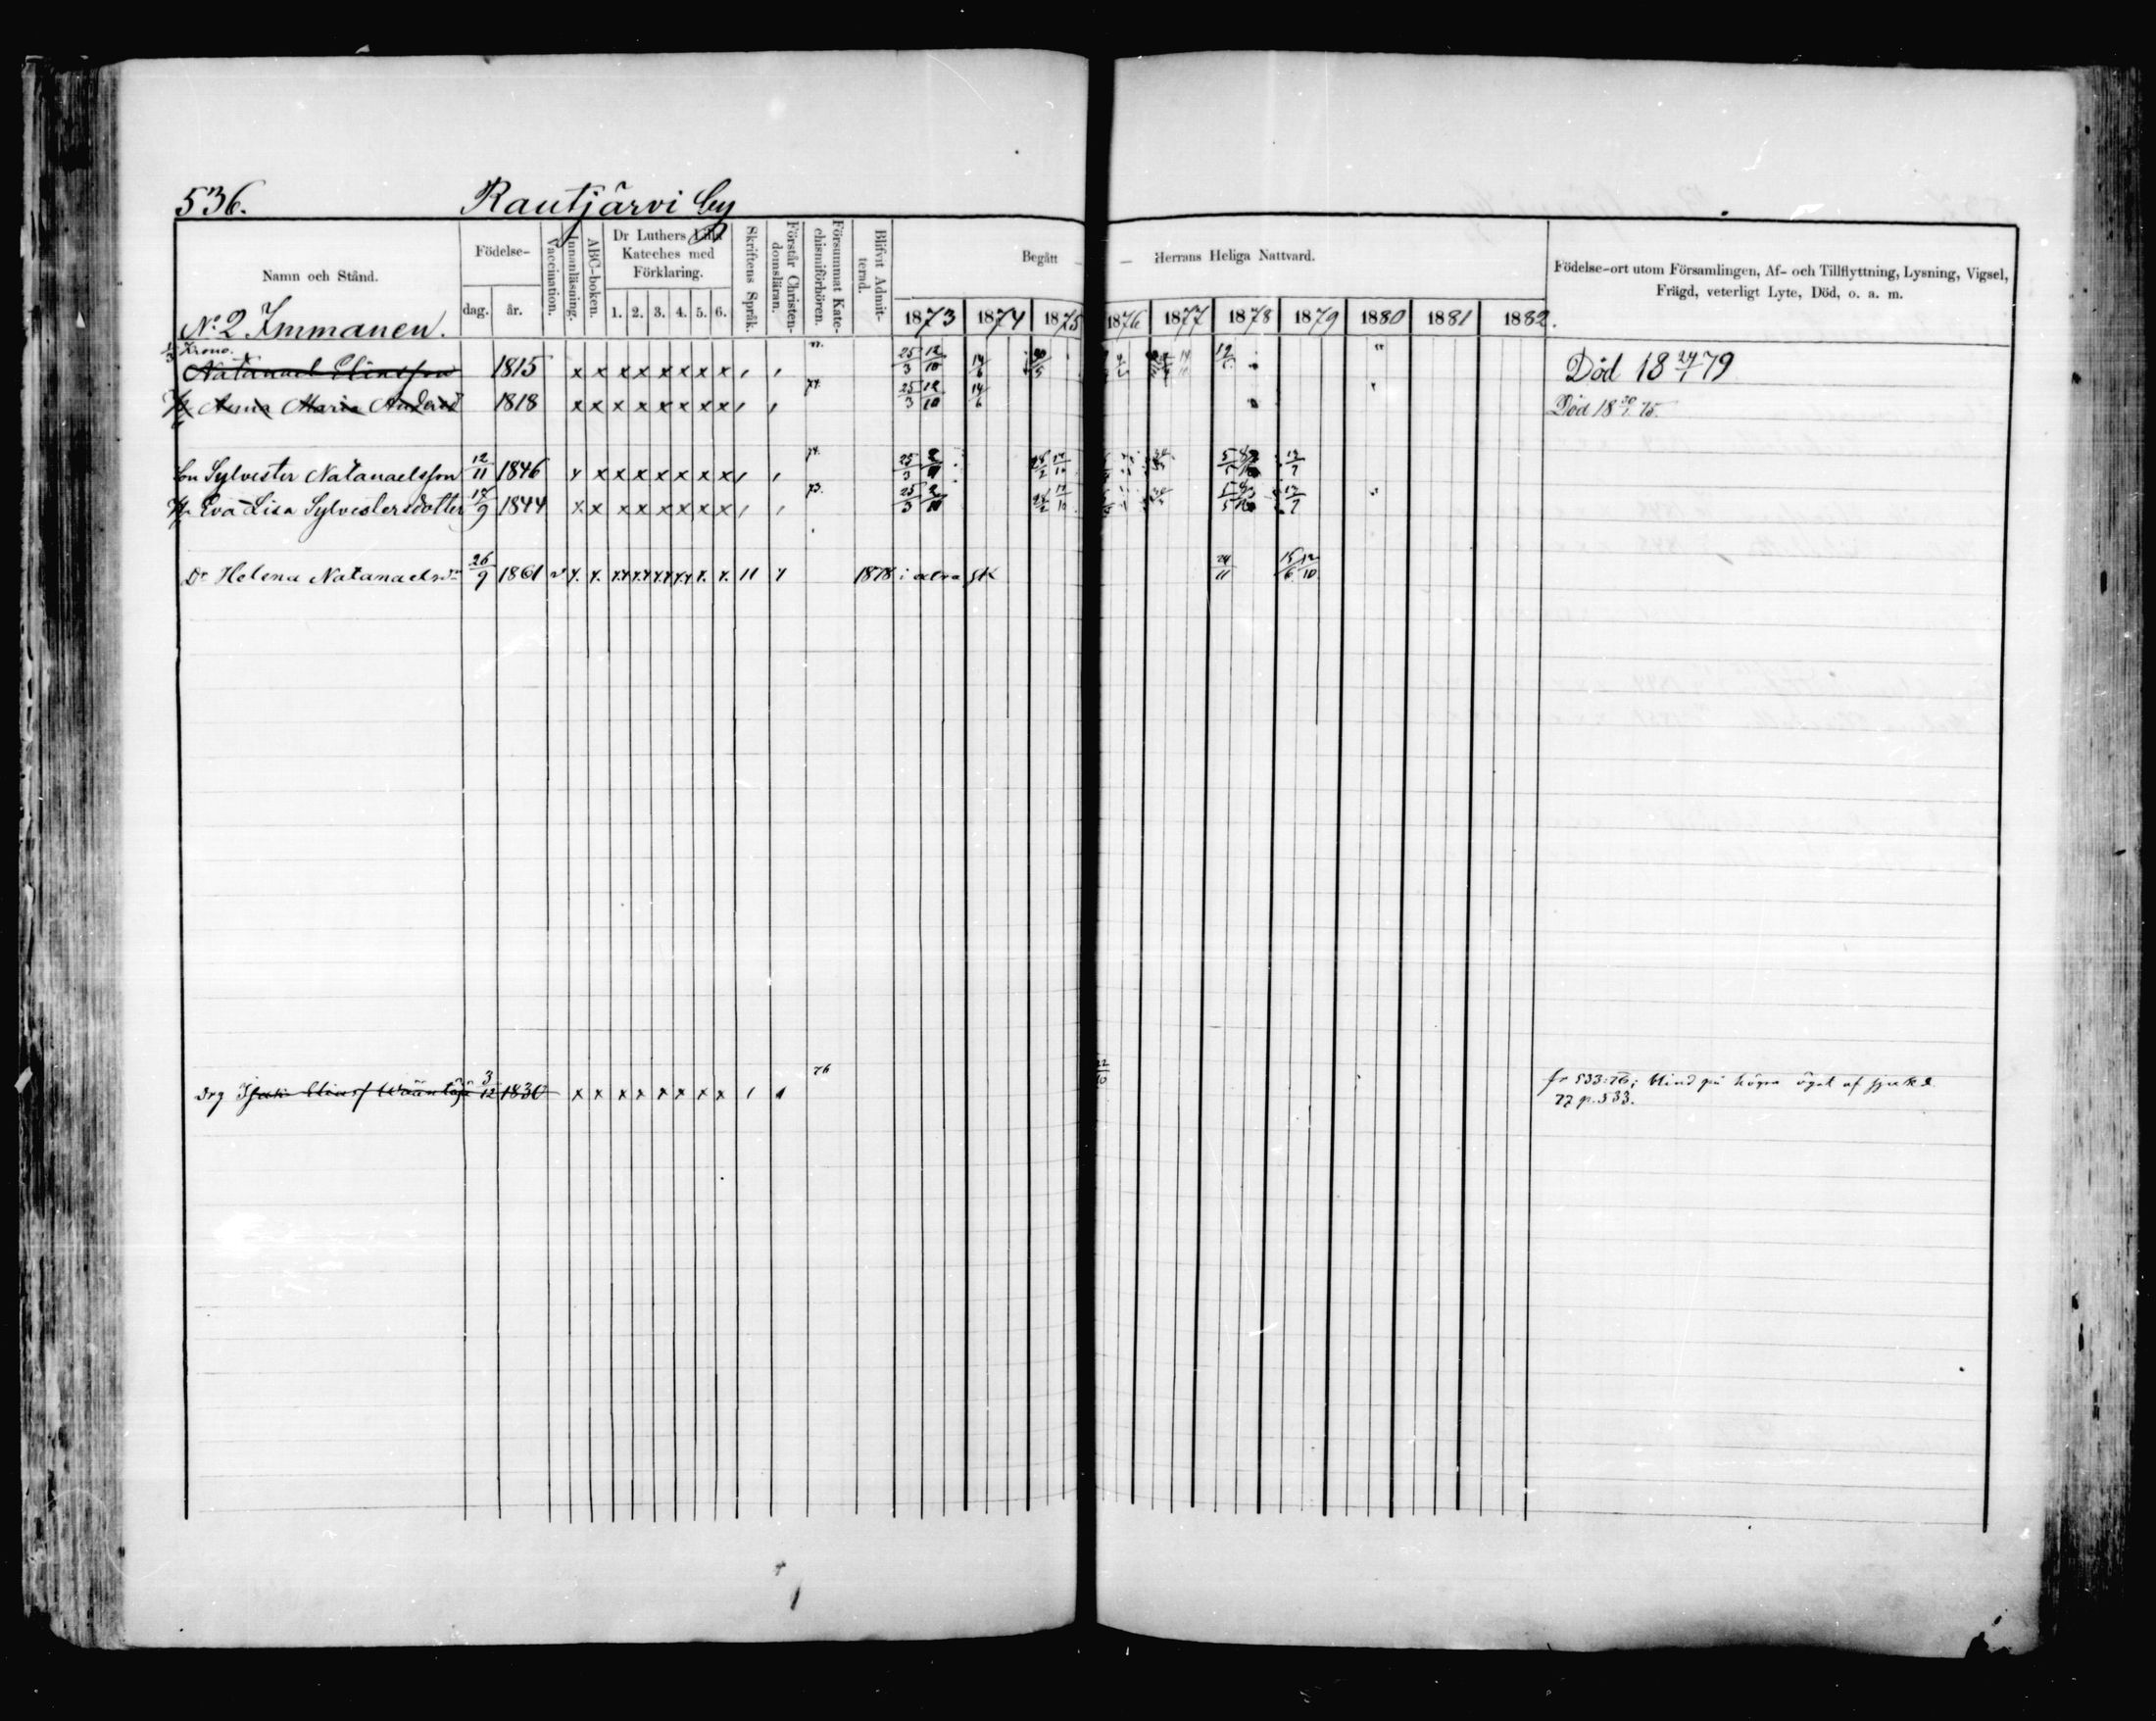 536. Rautjärvi by
Namn och Stånd. Födelse- dag. år. Vaccination. Innanläsning. ABC-boken. Dr Luthers Lilla Kateches med Förklaring. 1. 2. 3. 4. 5. 6. Skriftens Språk. Förstår Christendomsläran. Försummat Katechismiförhören. Blifvit Admitterad. Begått — Herrans Heliga Nattvard.
1873 1874 1875 1876 1877 1878 1879 1880 1881 1882.
Födelse-ort utom Församlingen, Af- och Tillflyttning, Lysning, Vigsel,
Frägd, veterligt Lyte, Död, o. a. m.
No 2 Immanen.
1/3 Krono.
Natanael Eliasson 1815 x x x x x x x x x 25/3 12/10 14/6 Död 18 24/1 79
Anna Maria Andersd 1818 x x x x x x x x x 74. 25/3 12/10 14/6 Död 18 30/1 75.
Son Sylvester Natanaelsson 12/11 1846 x x x x x x x x x 74. 25/3 12/7
H. Eva Lisa Sylvestersdotter 17/9 1844 x x x x x x x x x 73. 25/3 12/7
Dr Helena Natanaelsdr 26/9 1861 1878 i extra SK 24/11 15/6 12/10
drg Isak Eliass Wäänläjä 3/12 1830 x x x x x x x x 76 fr 533:76; blind på högra ögat af
77 p. 533.